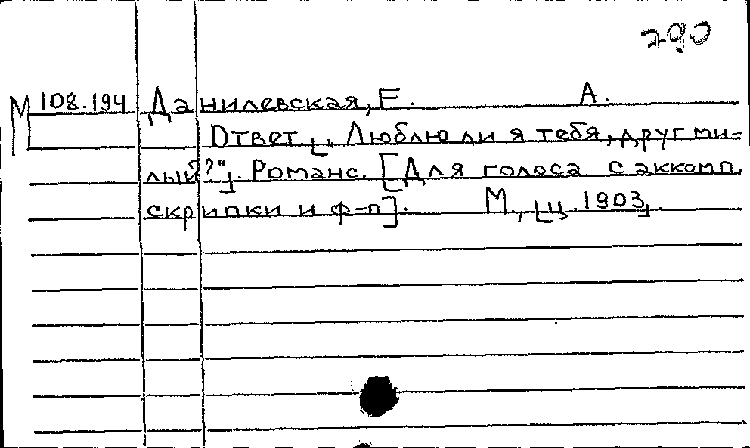 290
М 108.194 Данилевская, Е. А.
Ответ [„Люблю ли я тебя, друг ми=
лый?"]. Романс. [Для голоса с аккомп.
скрипки и ф=п]. М., [ц. 1903]